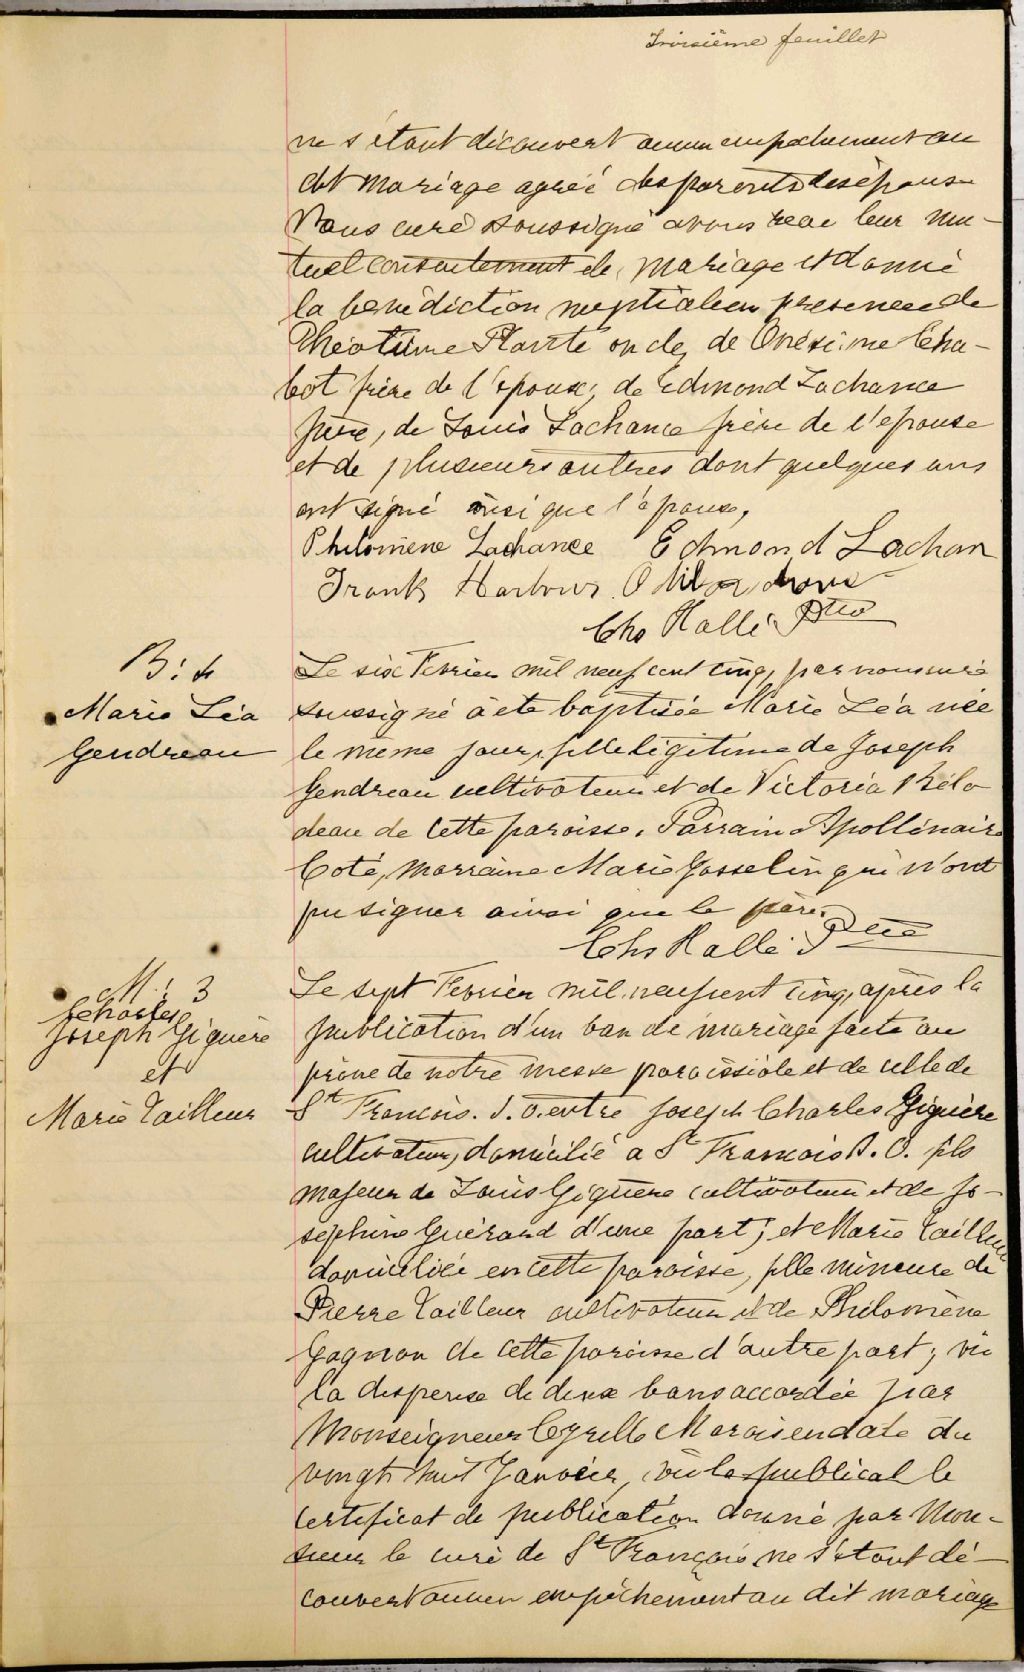 Troisième feuillet
ne s'étant découvert aucun empêchement au
dit mariage agréé des parents des époux
Nous curé soussigné avons recu leur mu-
tuel consentement de mariage et donné
la bénédiction nuptiale en présence de
Théotime Plante oncle, de Onésime Cha-
bot frère de l'époux, de Edmond Lachance
père, de Louis Lachance frère de l'épouse
et de plusieurs autres dont quelques uns
ont signé ainsi que l'épouse,
Philomène Lachance Edmond Lachan
Frank
Chs Hallé Ptre
B: 4
Marie Léa
Gendreau
Le six Fevrier mil neuf cent cinq, par nous curé
soussigné a été baptisée Marie Léa née
le même jour, fille légitime de Joseph
Gendreau cultivateur et de Victoria Bélo
deau de cette paroisse. Parrain Apollinaire
Coté, marraine Marie Gosselin qui n'ont
pu signer ainsi que le père.
Chs Hallé Ptre
M: 3
Charles
Joseph Giguère
et
Marie Tailleur
Le sept Fevrier mil neuf cent cinq, après la
publication d'un ban de mariage faite au
prône de notre messe paroissiale et de celle de
St François. I. O. entre Joseph Charles Giguère
cultivateur, domicilié a St François I. O. fils
majeur de Louis Giguère cultivateur et de Jo-
sephine Guérard d'une part; et Marie Tailleur
domiciliée en cette paroisse, fille mineure de
Pierre Tailleur cultivateur et de Philomène
Gagnon de cette paroisse d'autre part; vu
la dispense de deux bans accordée par
Monseigneur Cyrille Marois en date du
vingt huit Janvier, vu la publicat le
certificat de publication donné par Mon-
sieur le curé de St François, ne s'étant dé-
couvert aucun empêchement au dit mariage